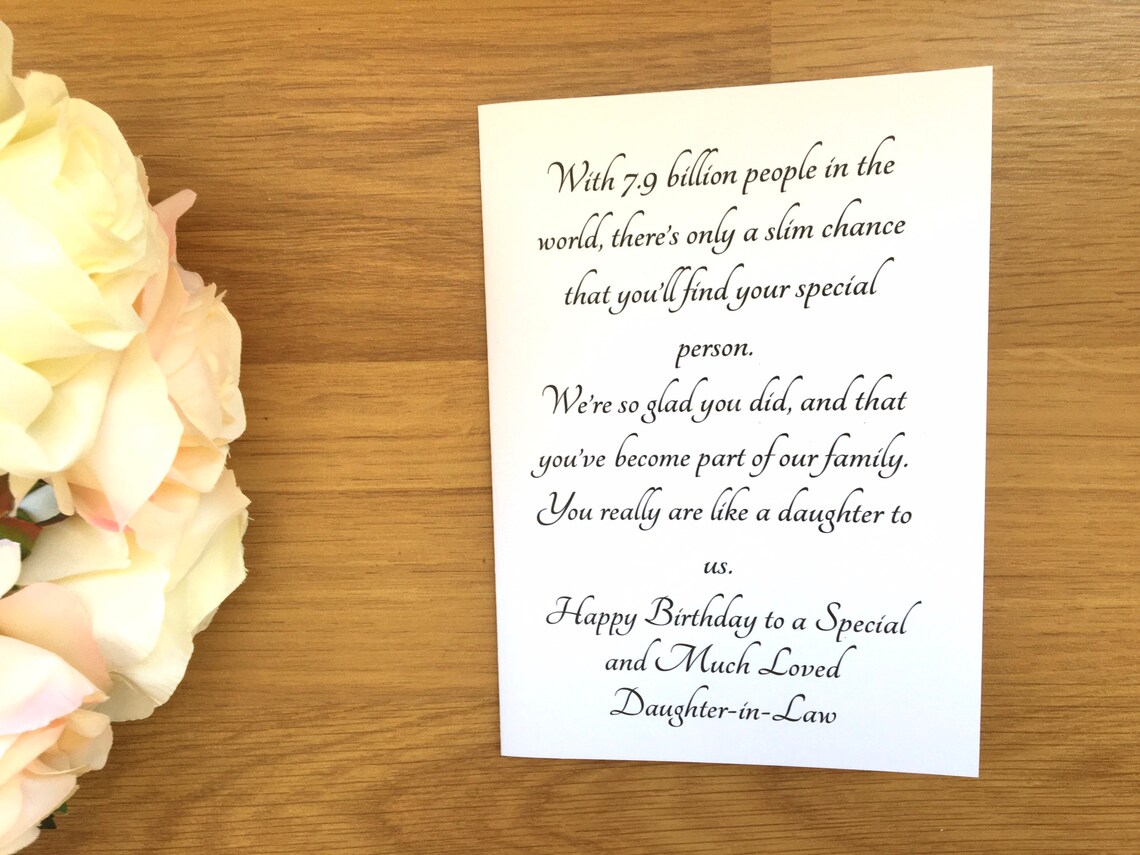 With 7.9 billion people in the
world, there's only a slim chance
that you'll find your special
person.
We're so glad you did, and that
you've become part of our family.
You really are like a daughter to
us.
Happy Birthday to a Special
and Much Loved
Daughter-in-Law